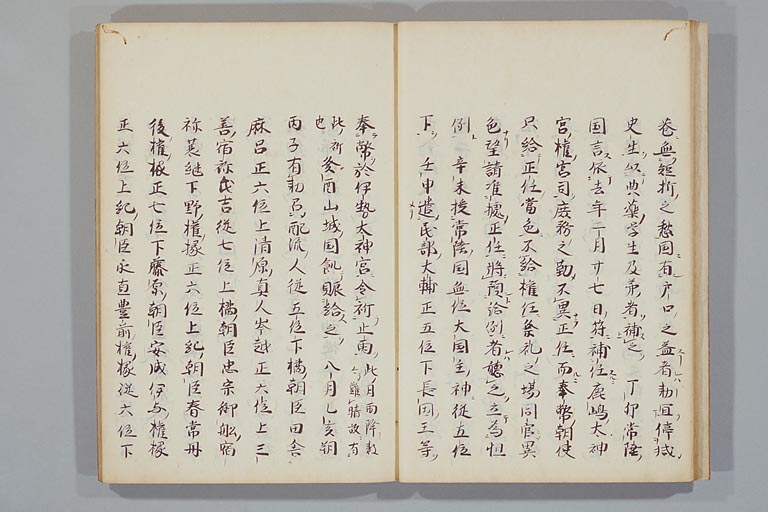 巻無矩折之愁国有戸口之益者勅宜停減
史生以典薬学生及第者補之 丁卯常陸
国言依去年二月廿七日符補任鹿嶋太神
宮権宮司庶務之勤不異正任而奉幣朝使
只給正任当色不給権任祭礼之場同官異
色望請准據正任将預給例者聴之立為恒
例 辛未授常陸国無位大国主神従五位
下 壬申遣民部大輔正五位下長田王等
奉幣於伊勢大神宮令祈止雨此月雨降数
也 癸酉山城国飢賑給之 八月乙亥朔
丙子有勅召配流人従五位下橘朝臣田舎
麻呂正六位上清原真人岑越正六位上三
善宿祢氏吉従七位上橘朝臣忠宗御船宿
祢 継下野権掾正六位上紀朝臣春常丹
後権掾正七位下藤原朝臣安成伊与権掾
正六位上紀朝臣永直豊前権掾従六位下